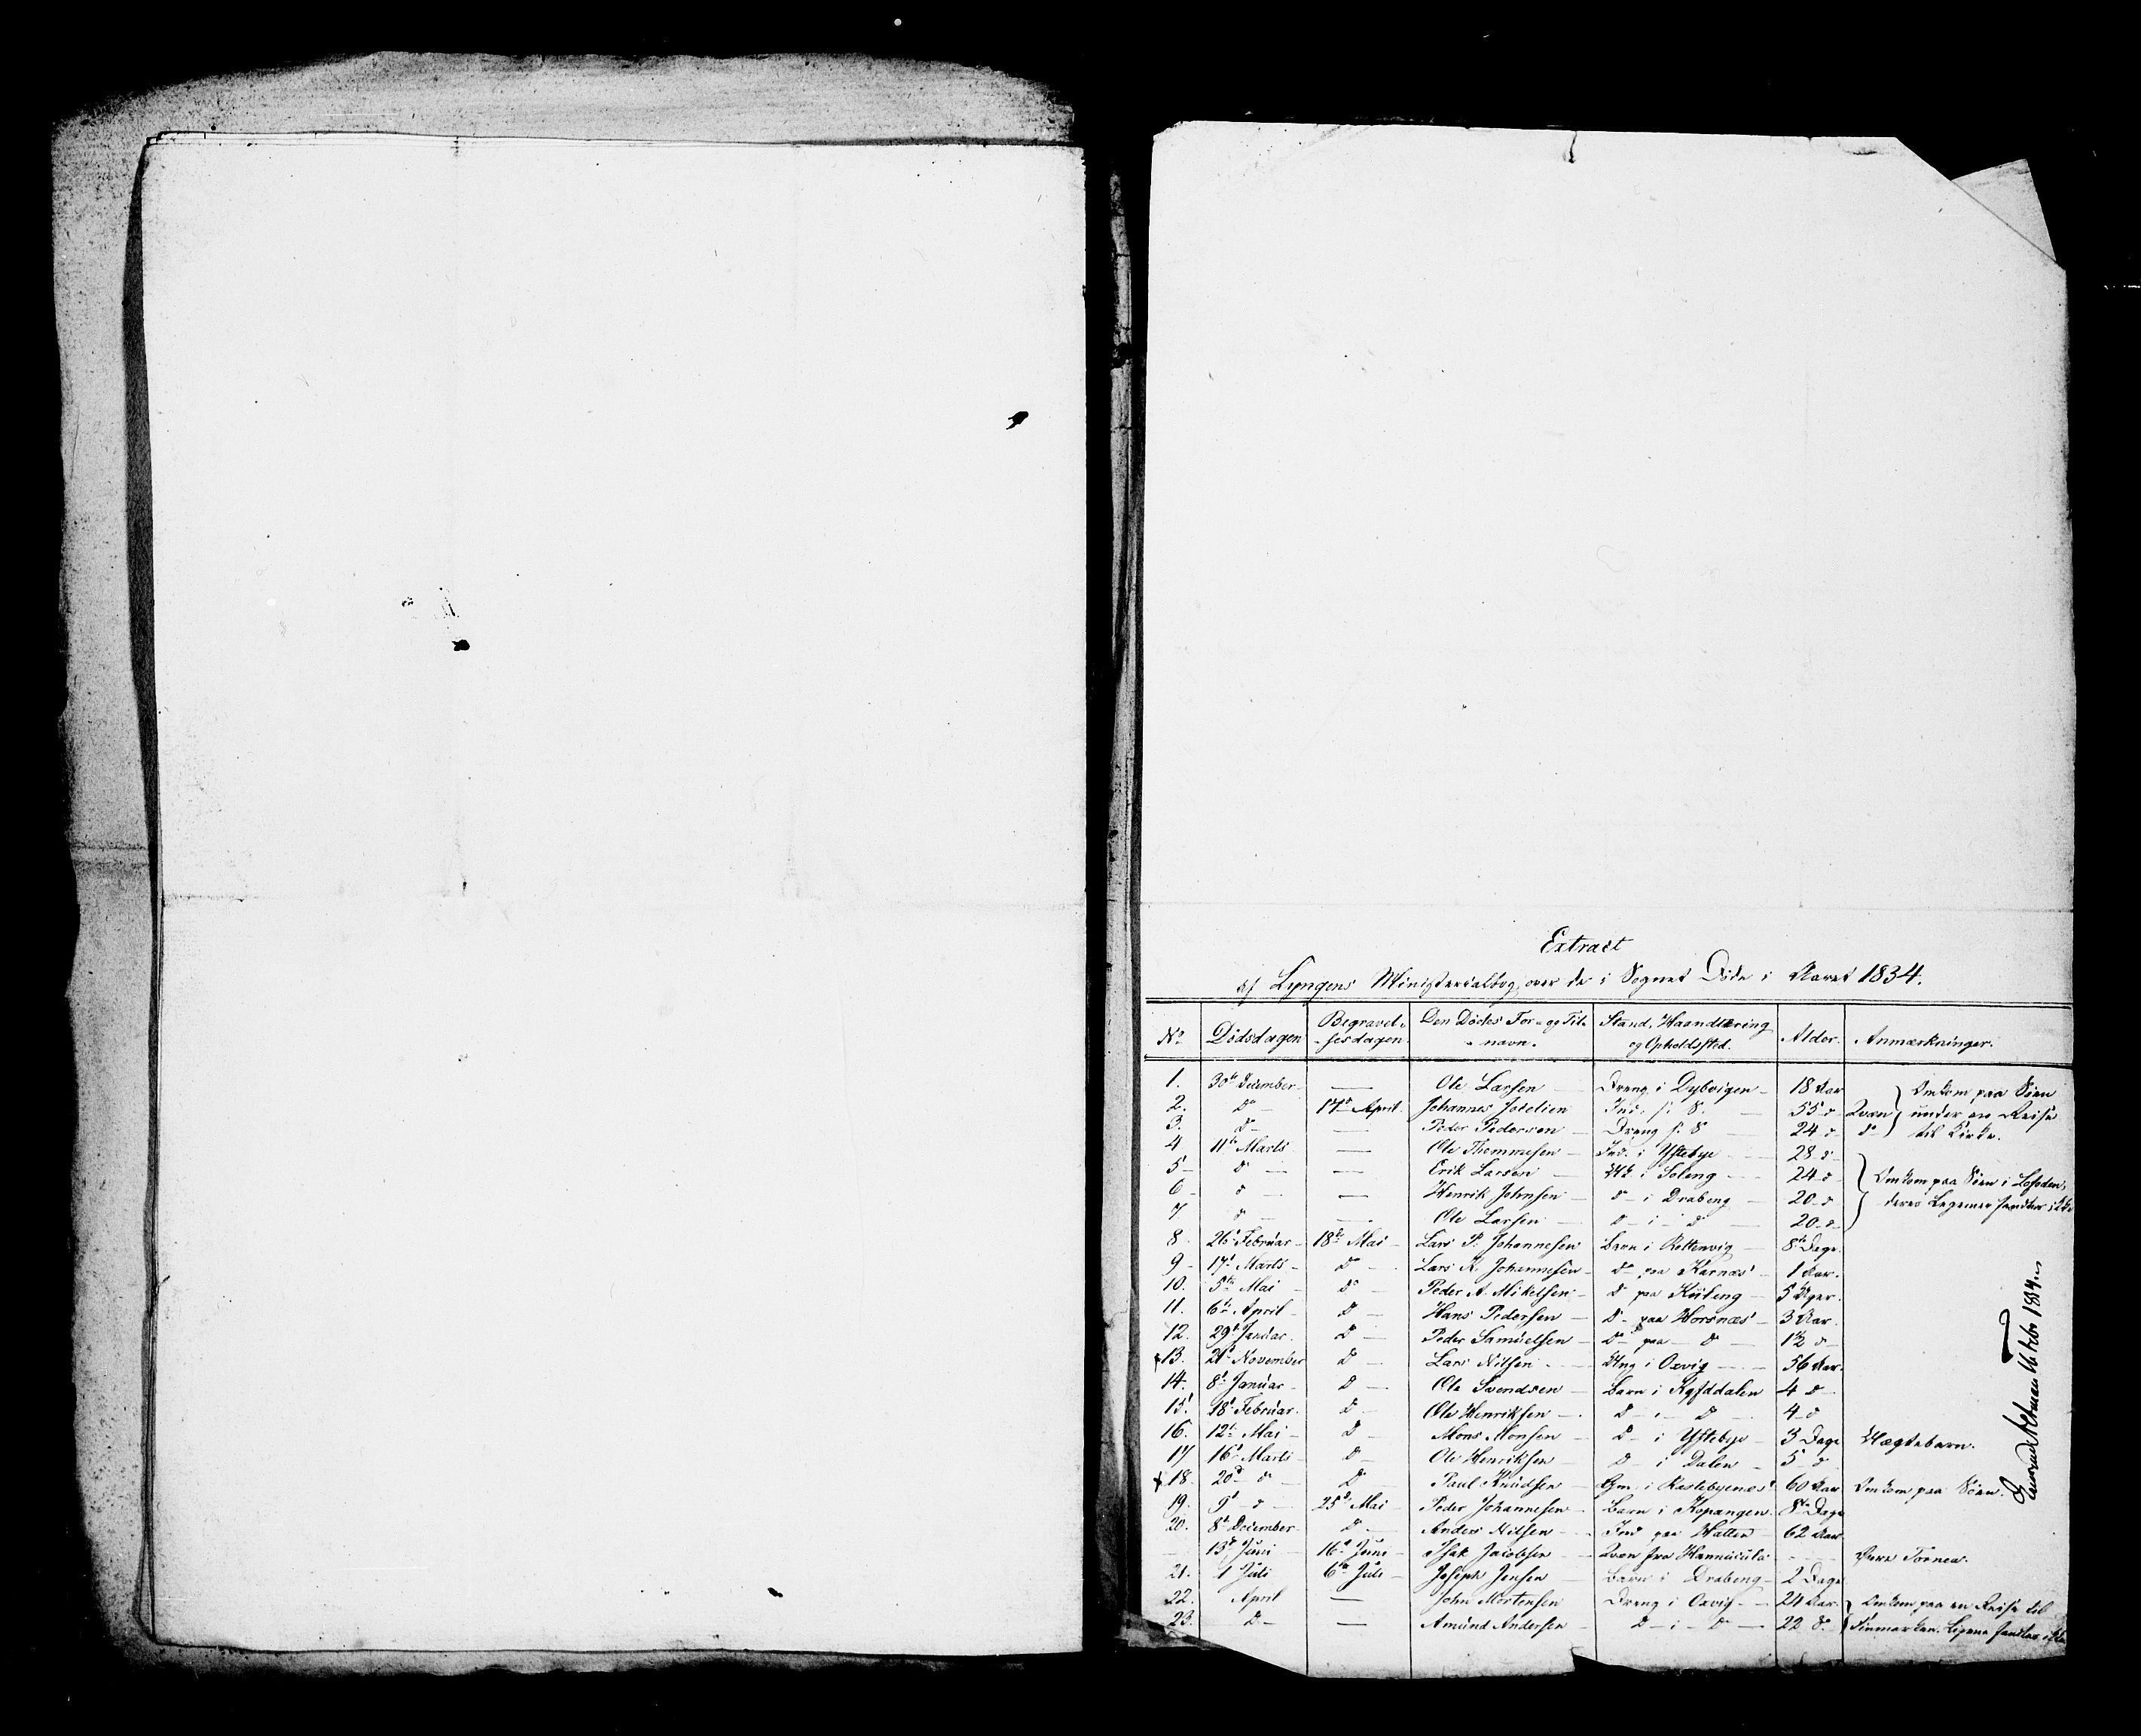 Extract
af Lyngens Ministerialbog, over de i Sognet Døde i Aaret 1834.
No Dødsdagen Begravel- Den Dødes For- og Til- Stand, Haandtering Alder. Anmærkninger.
sesdagen navn. og Opholdssted.
1. 30te December — Ole Larsen — Dreng i Dybvigen — 18 Aar Omkom paa Søen
2. do — 17de April. Johannes Ind. s: S. — 55 d Qvæn under en Reise
3. do — — Peder Pedersen — Dreng s: S — 24 d d — til Kirke.
4 11te Marts — Ole Thommesen — Ind. i Yttebye — 28 d
5 — d — — Erik Larsen — i Soleng — 24 d Omkom paa Søen i Lofoden,
6 — d — — Henrik Johnsen — d — i Drabeng — 20 d deres Legemer fandtes
7 d — — Ole Larsen — d — i — d — 20 d —
8 26 Februar — 18de Mai — Lars P. Johannesen Barn i Rottenvig — 8te Dage.
9 — 17de Marts — do — Lars A. Johannesen — do paa Karnæs — 1 Aar.
10. 5te Mai — do — Peder A. Mikelsen — d paa — 5 Uger.
11. 6te April — d — Hans Pedersen — d — paa Horsnæs — 3 Aar.
12. 29de Januar. d — Peder Samuelsen — do paa — d — 1½ d —
13. 21de November d — Lars Nilsen — i Oxvig — 56 Aar.
14. 8de Januar — d — Ole Svendsen — Barn i Kjosdalen 4 d —
15. 18de Februar. d — Ole Henriksen — d — i — d — 4 d
16. 12te Mai — d — Mons Monsen — d — i Yttebye — 3 Dage Uægtebarn.
17 16de Marts — d — Ole Henriksen — d — i Dalen — 5 d
18. 20de d — d — Paul Knudsen — Gm. i Rastebyenæs 60 Aar Omkom paa Søen.
19. 9de d — 25de Mai — Peder Johannesen — Barn i Kopangen. 8te Dage
20. 8de December — d — Anders Nilsen — Ind paa Hatten — 62 Aar
13de Juni — 16de Juni — Isak Jacobsen — Qvæn fra — Øvre Tornea.
21. 1 Juli 6te Juli — Joseph Jensen — Barn i Drabeng — 2 Dage
22. April — John Mortensen Dreng i Oxvig — 24 Aar. Omkom paa en Reise til
23. do — — Amund Andersen — d — i — d — 22 d. Finmarken.